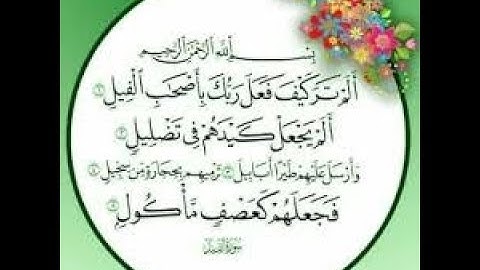 بِسْمِ اللَّهِ الرَّحْمَنِ الرَّحِيمِ
أَلَمْ تَرَ كَيْفَ فَعَلَ رَبُّكَ بِأَصْحَابِ الْفِيلِ ١
أَلَمْ يَجْعَلْ كَيْدَهُمْ فِي تَضْلِيلٍ ٢
وَأَرْسَلَ عَلَيْهِمْ طَيْرًا أَبَابِيلَ ٣ تَرْمِيهِم بِحِجَارَةٍ مِّن سِجِّيلٍ ٤
فَجَعَلَهُمْ كَعَصْفٍ مَّأْكُولٍ ٥
سورة الفيل